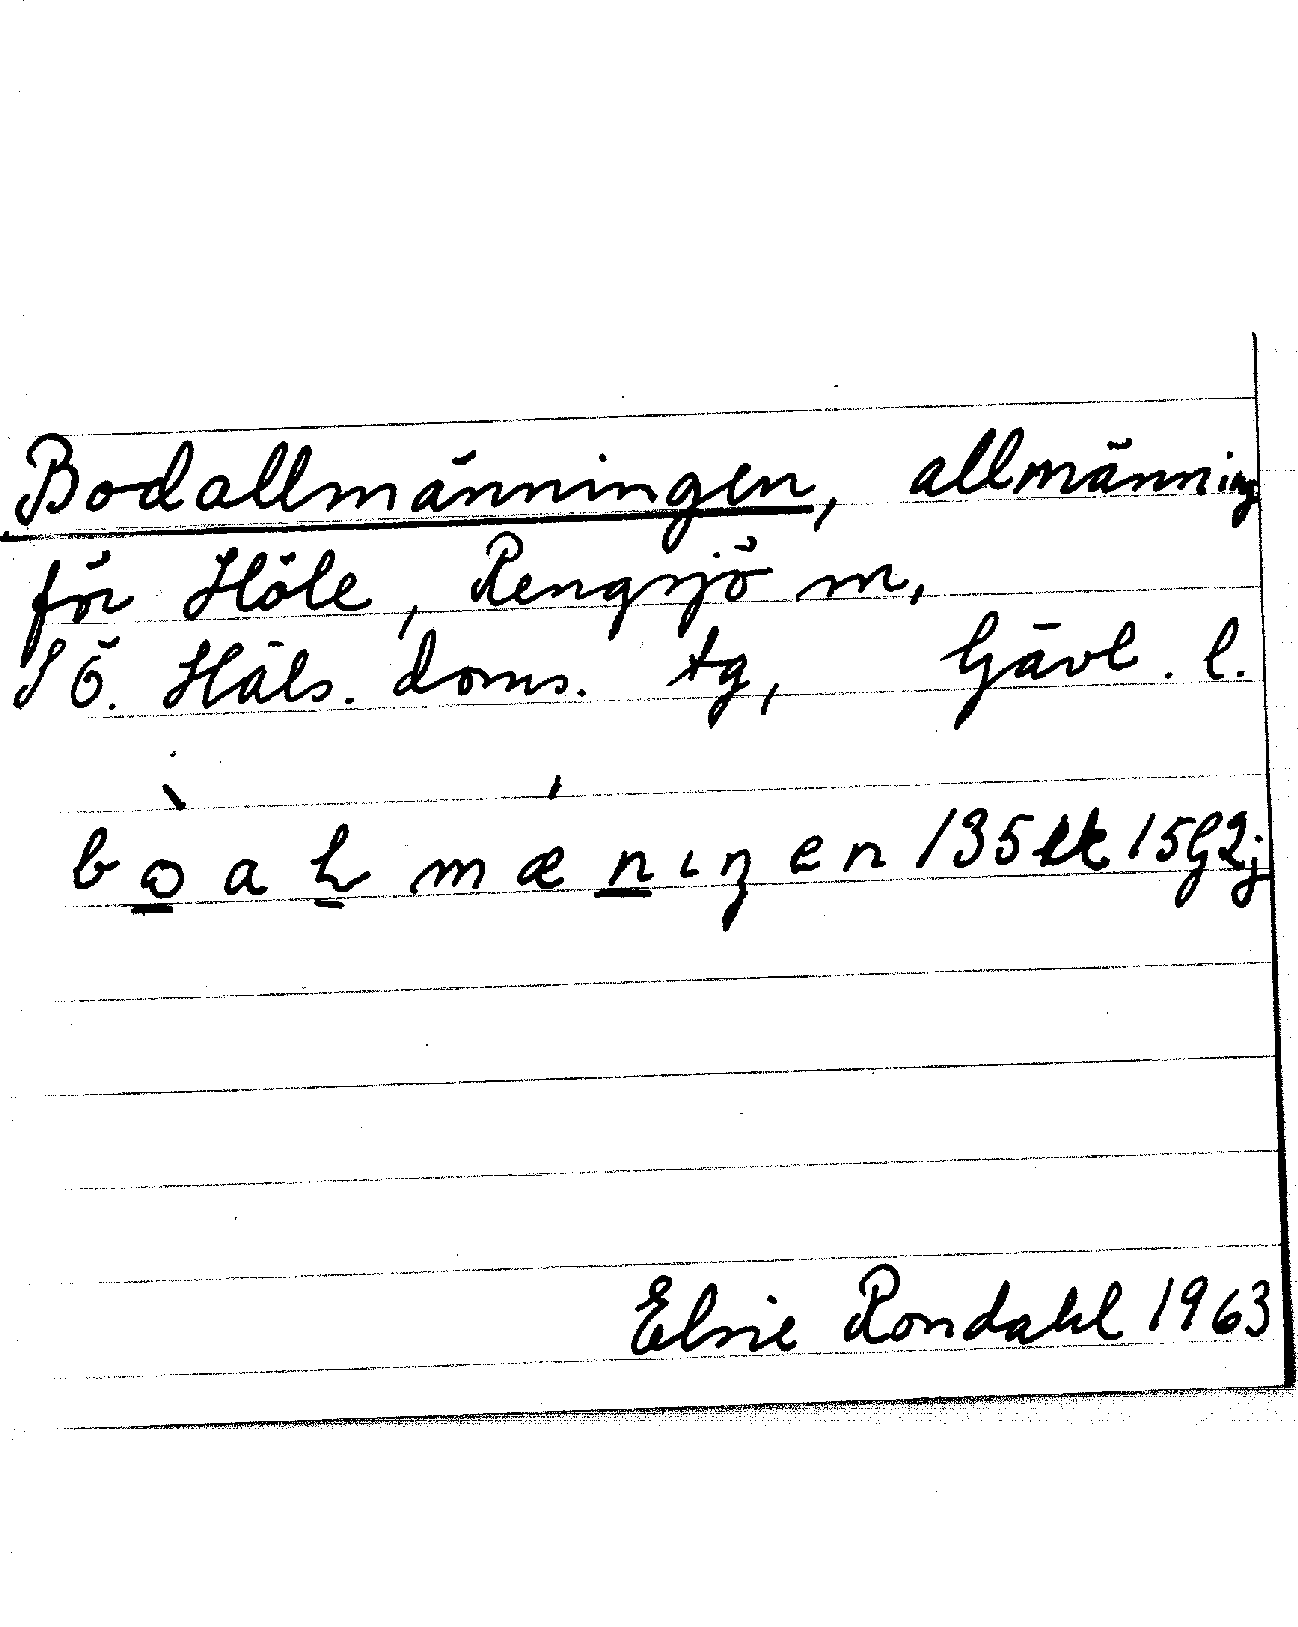 Bodallmänningen, allmänning
för Höle, Rengsjö sn,
S Ö. Häls. doms. tg, Gävl. l.
135 15G2j
Elsie Rondahl 1963